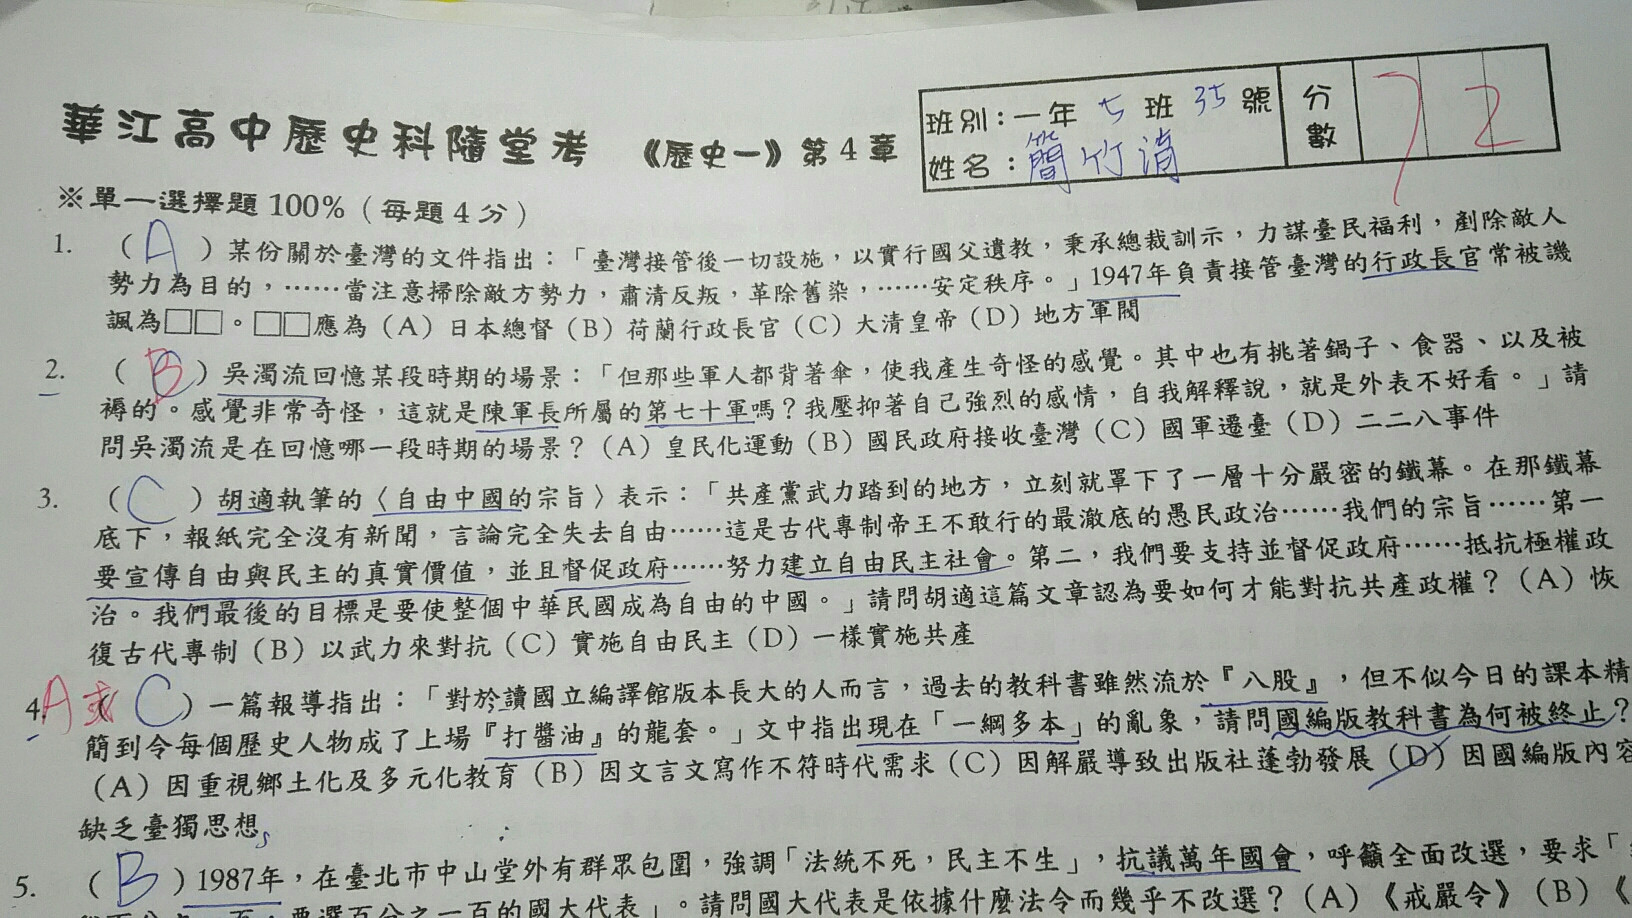 華江高中歷史科隨堂考 《歷史一》第4章
班別：一年 5 班 35 號
姓名：簡竹涓
分數 72
※單一選擇題 100%（每題 4 分）
1. （A）某份關於臺灣的文件指出：「臺灣接管後一切設施，以實行國父遺教，秉承總裁訓示，力謀臺民福利，剷除敵人
勢力為目的，……當注意掃除敵方勢力，肅清反叛，革除舊染，……安定秩序。」1947年負責接管臺灣的行政長官常被譏
諷為□□。□□應為（A）日本總督（B）荷蘭行政長官（C）大清皇帝（D）地方軍閥
2. （B）吳濁流回憶某段時期的場景：「但那些軍人都背著傘，使我產生奇怪的感覺。其中也有挑著鍋子、食器、以及被
褥的。感覺非常奇怪，這就是陳軍長所屬的第七十軍嗎？我壓抑著自己強烈的感情，自我解釋說，就是外表不好看。」請
問吳濁流是在回憶哪一段時期的場景？（A）皇民化運動（B）國民政府接收臺灣（C）國軍遷臺（D）二二八事件
3. （C）胡適執筆的〈自由中國的宗旨〉表示：「共產黨武力踏到的地方，立刻就罩下了一層十分嚴密的鐵幕。在那鐵幕
底下，報紙完全沒有新聞，言論完全失去自由……這是古代專制帝王不敢行的最澈底的愚民政治……我們的宗旨……第一
要宣傳自由與民主的真實價值，並且督促政府……努力建立自由民主社會。第二，我們要支持並督促政府……抵抗極權政
治。我們最後的目標是要使整個中華民國成為自由的中國。」請問胡適這篇文章認為要如何才能對抗共產政權？（A）恢
復古代專制（B）以武力來對抗（C）實施自由民主（D）一樣實施共產
4. A或（C）一篇報導指出：「對於讀國立編譯館版本長大的人而言，過去的教科書雖然流於『八股』，但不似今日的課本精
簡到令每個歷史人物成了上場『打醬油』的龍套。」文中指出現在「一綱多本」的亂象，請問國編版教科書為何被終止？
（A）因重視鄉土化及多元化教育（B）因文言文寫作不符時代需求（C）因解嚴導致出版社蓬勃發展（D）因國編版內容
缺乏臺獨思想。
5. （B）1987年，在臺北市中山堂外有群眾包圍，強調「法統不死，民主不生」，抗議萬年國會，呼籲全面改選，要求「
百分之一百的國大代表」。請問國大代表是依據什麼法令而幾乎不改選？（A）《戒嚴令》（B）《